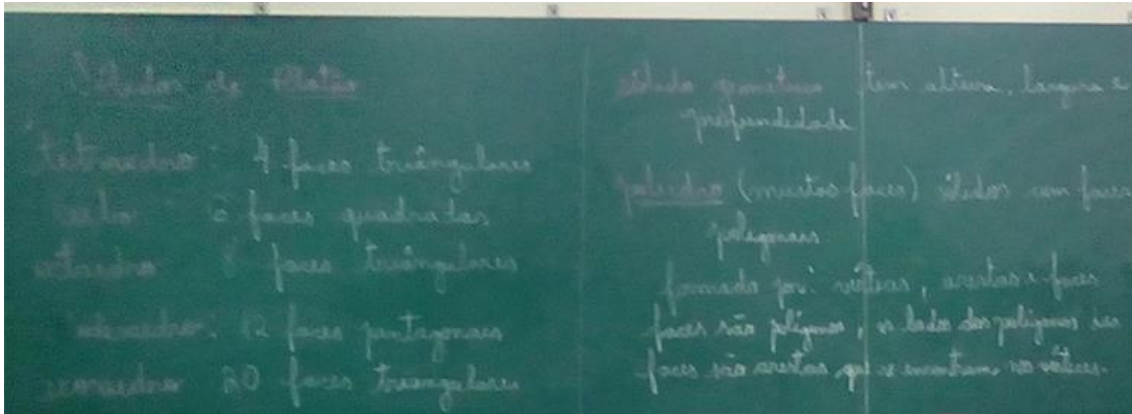 Sólidos de Platão
tetraedro: 4 faces triângulares
cubo 6 faces quadradas
octaedro 8 faces triângulares
dodecaedro: 12 faces pentagonais
icosaedro 20 faces triangulares
sólido geométrico tem altura, largura e
profundidade
poliedro (muitas faces) sólidos com faces
poligonais
formado por: vértices, arestas e faces
faces são polígonos, os lados dos polígonos
faces são arestas que se encontram nos vértices.